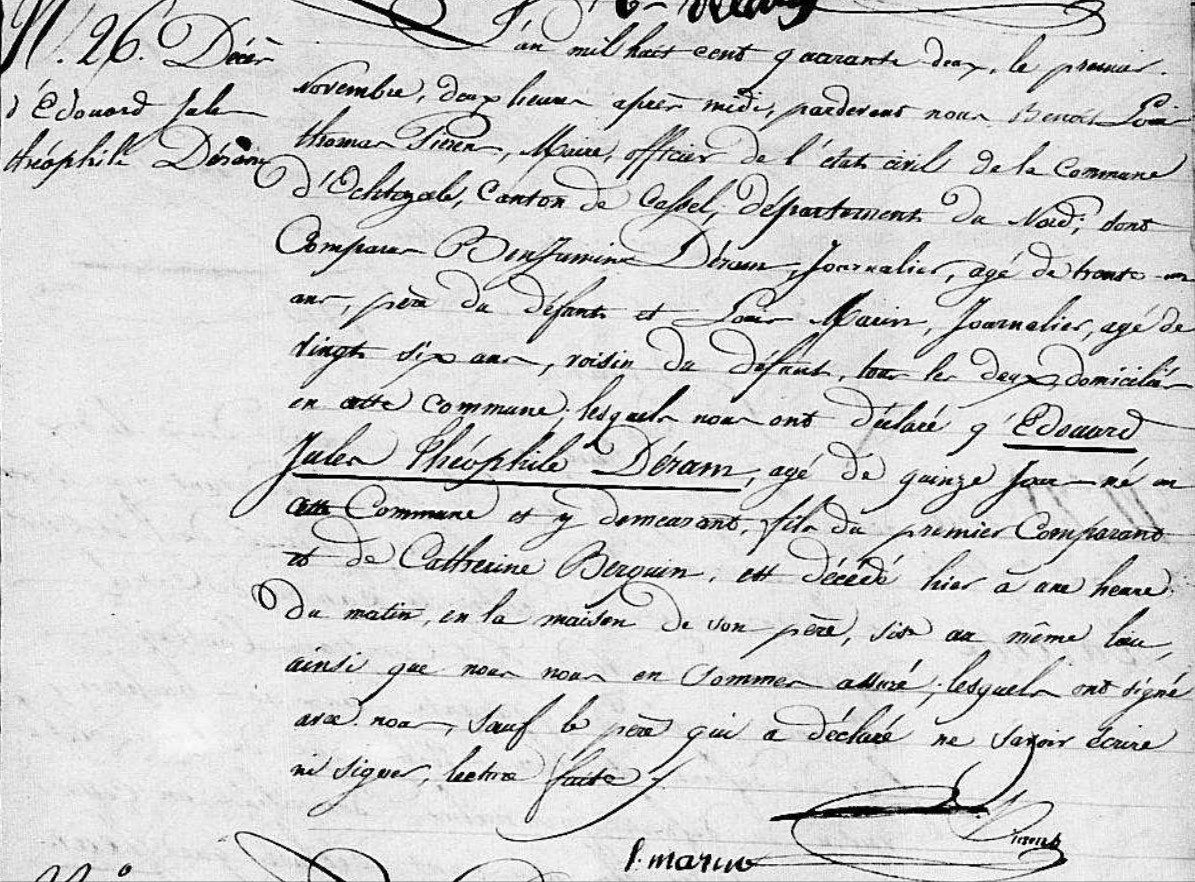 N.º 26. Décès
d'Edouard Jules
théophile Déram
L'an mil huit cent quarante deux, le premier
Novembre, deux heures après midi, pardevant nous Benoit Louis
thomas Tieren, Maire, officier de l'état civil de la Commune
d'Ochtezeele, Canton de Cassel, département du Nord; sont
Comparus Benjamin Déram, Journalier, agé de trente un
ans, père du défunt et Louis Marin, Journalier, agé de
vingt six ans, voisin du défunt, tous les deux domiciliés
en cette commune; lesquels nous ont déclaré q' Edouard
Jules Théophile Déram, agé de quinze jours né en
cette Commune et y demeurant, fils du premier Comparant
et de Catherine Berquin, est décédé hier à une heure
du matin, en la maison de son père, sise au même lieu,
ainsi que nous nous en sommes assuré; lesquels ont signé
avec nous, sauf le père qui a déclaré ne savoir écrire
ni signer, lecture faite
l. marin
N.º